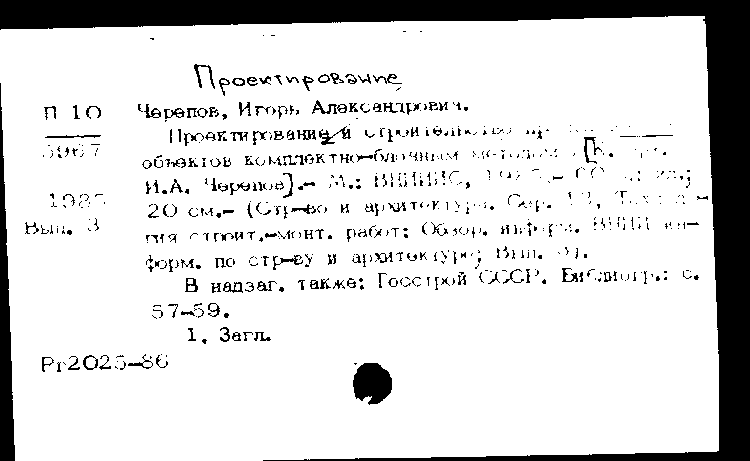 Проектирование
П 10 Черепов, Игорь Александрович.
Проектирование и строительство
5967 объектов комплектно-блочным методом [К.
И.А. Черепов].- М.: ВНИИИС,
1985 20 см.- (Стр-во и архитектура. Сер.
Вып. 3 гия строит.-монт. работ: Обзор. информ. ВНИИ ин-
форм. по стр-ву и архитектуре; Вып. 3).
В надзаг. также: Госстрой СССР. Библиогр.: с.
57-59.
1. Загл.
Рг2025-86